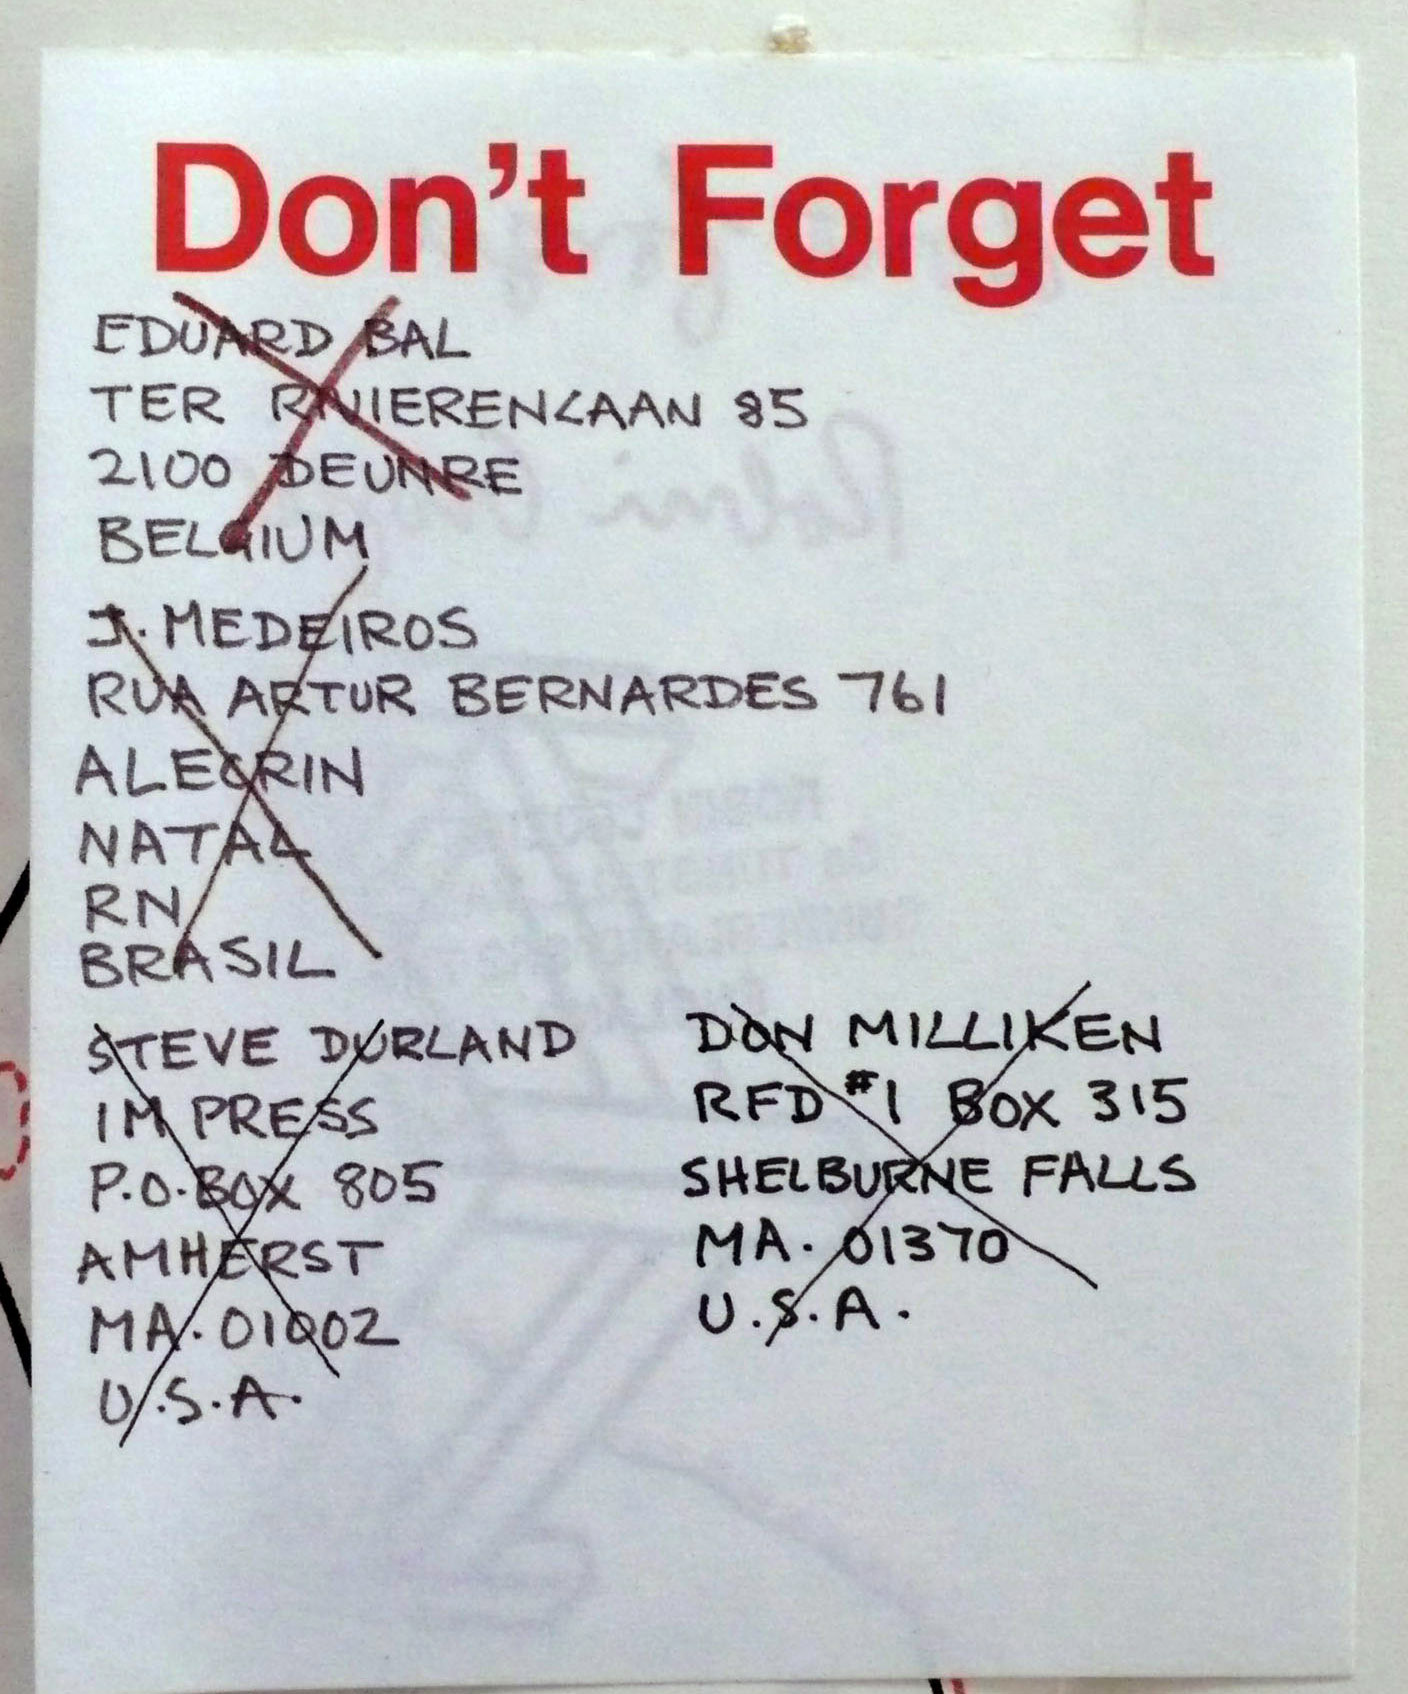 Don't Forget
EDUARD BAL
TER RIVIERENLAAN 85
2100 DEURNE
BELGIUM
J. MEDEIROS
RUA ARTUR BERNARDES 761
ALECRIN
NATAL
RN
BRASIL
STEVE DURLAND
IM PRESS
P.O. BOX 805
AMHERST
MA. 01002
U.S.A.
DON MILLIKEN
RFD #1 BOX 315
SHELBURNE FALLS
MA. 01370
U.S.A.